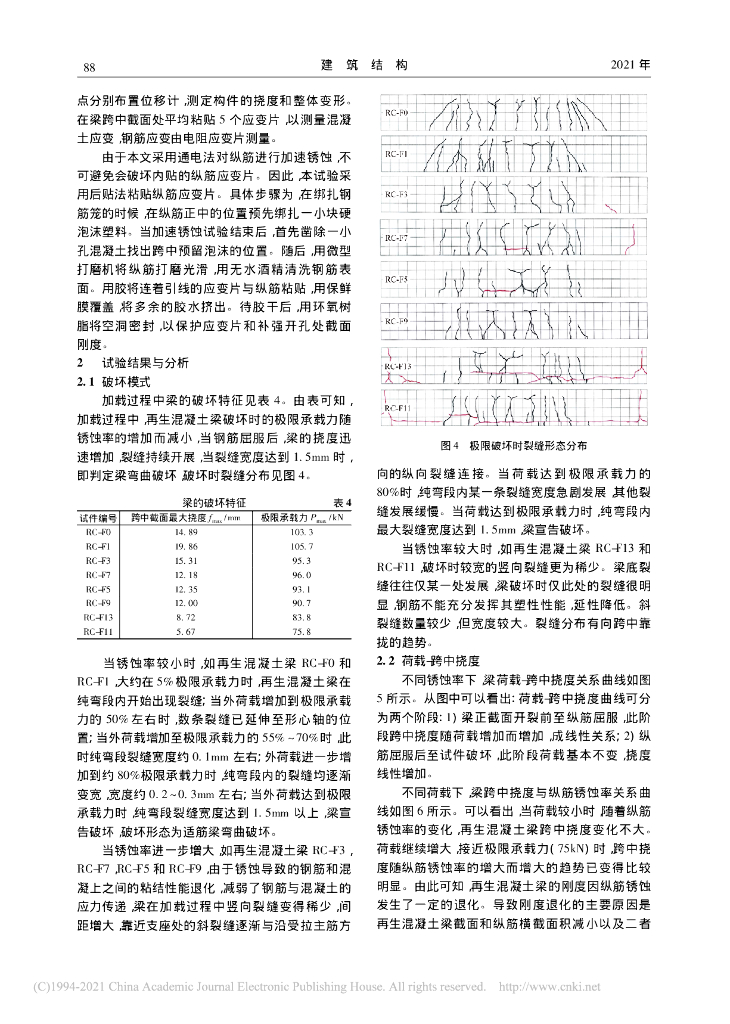 88
建 筑 结 构
2021 年
点分别布置位移计 ,测定构件的挠度和整体变形。
在梁跨中截面处平均粘贴 5 个应变片 ,以测量混凝
土应变 ,钢筋应变由电阻应变片测量。
由于本文采用通电法对纵筋进行加速锈蚀 ,不
可避免会破坏内贴的纵筋应变片。因此 ,本试验采
用后贴法粘贴纵筋应变片。具体步骤为 ,在绑扎钢
筋笼的时候 ,在纵筋正中的位置预先绑扎一小块硬
泡沫塑料。当加速锈蚀试验结束后 ,首先凿除一小
孔混凝土找出跨中预留泡沫的位置。随后 ,用微型
打磨机将纵筋打磨光滑 ,用无水酒精清洗钢筋表
面。用胶将连着引线的应变片与纵筋粘贴 ,用保鲜
膜覆盖 ,将多余的胶水挤出。待胶干后 ,用环氧树
脂将空洞密封 ,以保护应变片和补强开孔处截面
刚度。
2 试验结果与分析
2. 1 破坏模式
加载过程中梁的破坏特征见表 4。由表可知 ,
加载过程中 ,再生混凝土梁破坏时的极限承载力随
锈蚀率的增加而减小 ,当钢筋屈服后 ,梁的挠度迅
速增加 ,裂缝持续开展 ,当裂缝宽度达到 1. 5mm 时 ,
即判定梁弯曲破坏 ,破坏时裂缝分布见图 4。
梁的破坏特征 表 4
试件编号 跨中截面最大挠度 fmax /mm 极限承载力 Pmax /kN
RC-F0 14. 89 103. 3
RC-F1 19. 86 105. 7
RC-F3 15. 31 95. 3
RC-F7 12. 18 96. 0
RC-F5 12. 35 93. 1
RC-F9 12. 00 90. 7
RC-F13 8. 72 83. 8
RC-F11 5. 67 75. 8
当锈蚀率较小时 ,如再生混凝土梁 RC-F0 和
RC-F1 ,大约在 5%极限承载力时 ,再生混凝土梁在
纯弯段内开始出现裂缝; 当外荷载增加到极限承载
力的 50% 左右时 ,数条裂缝已延伸至形心轴的位
置; 当外荷载增加至极限承载力的 55% ~70%时 ,此
时纯弯段裂缝宽度约 0. 1mm 左右; 外荷载进一步增
加到约 80%极限承载力时 ,纯弯段内的裂缝均逐渐
变宽 ,宽度约 0. 2~0. 3mm 左右; 当外荷载达到极限
承载力时 ,纯弯段裂缝宽度达到 1. 5mm 以上 ,梁宣
告破坏 ,破坏形态为适筋梁弯曲破坏。
当锈蚀率进一步增大 ,如再生混凝土梁 RC-F3 ,
RC-F7 ,RC-F5 和 RC-F9 ,由于锈蚀导致的钢筋和混
凝土之间的粘结性能退化 ,减弱了钢筋与混凝土的
应力传递 ,梁在加载过程中竖向裂缝变得稀少 ,间
距增大 ,靠近支座处的斜裂缝逐渐与沿受拉主筋方
RC-F0
RC-F1
RC-F3
RC-F7
RC-F5
RC-F9
RC-F13
RC-F11
图 4 极限破坏时裂缝形态分布
向的纵向裂缝连接。当荷载达到极限承载力的
80%时 ,纯弯段内某一条裂缝宽度急剧发展 ,其他裂
缝发展缓慢。当荷载达到极限承载力时 ,纯弯段内
最大裂缝宽度达到 1. 5mm ,梁宣告破坏。
当锈蚀率较大时 ,如再生混凝土梁 RC-F13 和
RC-F11 ,破坏时较宽的竖向裂缝更为稀少。梁底裂
缝往往仅某一处发展 ,梁破坏时仅此处的裂缝很明
显 ,钢筋不能充分发挥其塑性性能 ,延性降低。斜
裂缝数量较少 ,但宽度较大。裂缝分布有向跨中靠
拢的趋势。
2. 2 荷载-跨中挠度
不同锈蚀率下 ,梁荷载-跨中挠度关系曲线如图
5 所示。从图中可以看出: 荷载-跨中挠度曲线可分
为两个阶段: 1) 梁正截面开裂前至纵筋屈服 ,此阶
段跨中挠度随荷载增加而增加 ,成线性关系; 2) 纵
筋屈服后至试件破坏 ,此阶段荷载基本不变 ,挠度
线性增加。
不同荷载下 ,梁跨中挠度与纵筋锈蚀率关系曲
线如图 6 所示。可以看出 ,当荷载较小时 ,随着纵筋
锈蚀率的变化 ,再生混凝土梁跨中挠度变化不大。
荷载继续增大 ,接近极限承载力( 75kN) 时 ,跨中挠
度随纵筋锈蚀率的增大而增大的趋势已变得比较
明显。由此可知 ,再生混凝土梁的刚度因纵筋锈蚀
发生了一定的退化。导致刚度退化的主要原因是
再生混凝土梁截面和纵筋横截面积减小以及二者
(C)1994-2021 China Academic Journal Electronic Publishing House. All rights reserved. http://www.cnki.net